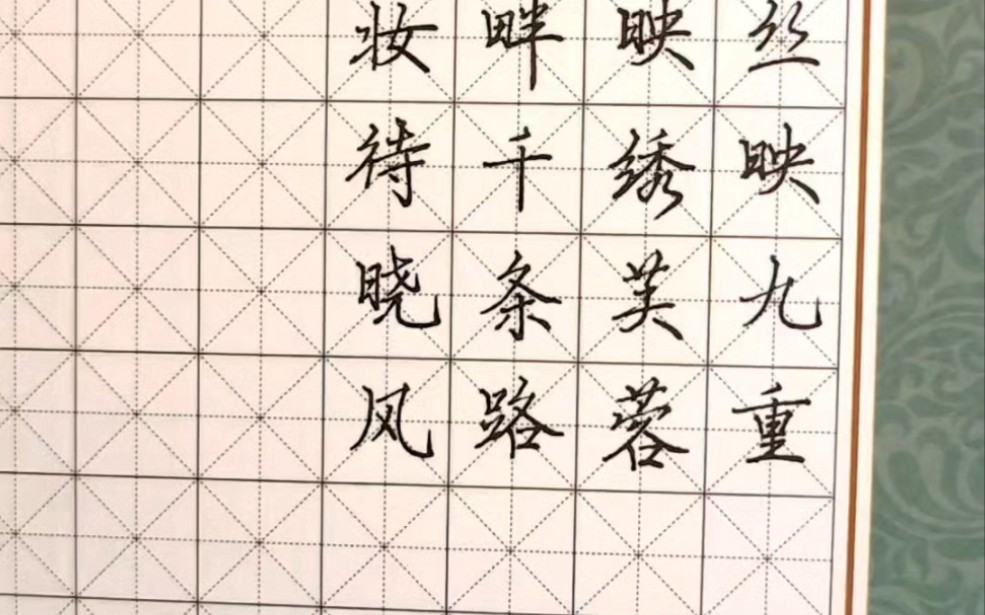 丝映九重
映绣芙蓉
畔千条路
妆待晓风